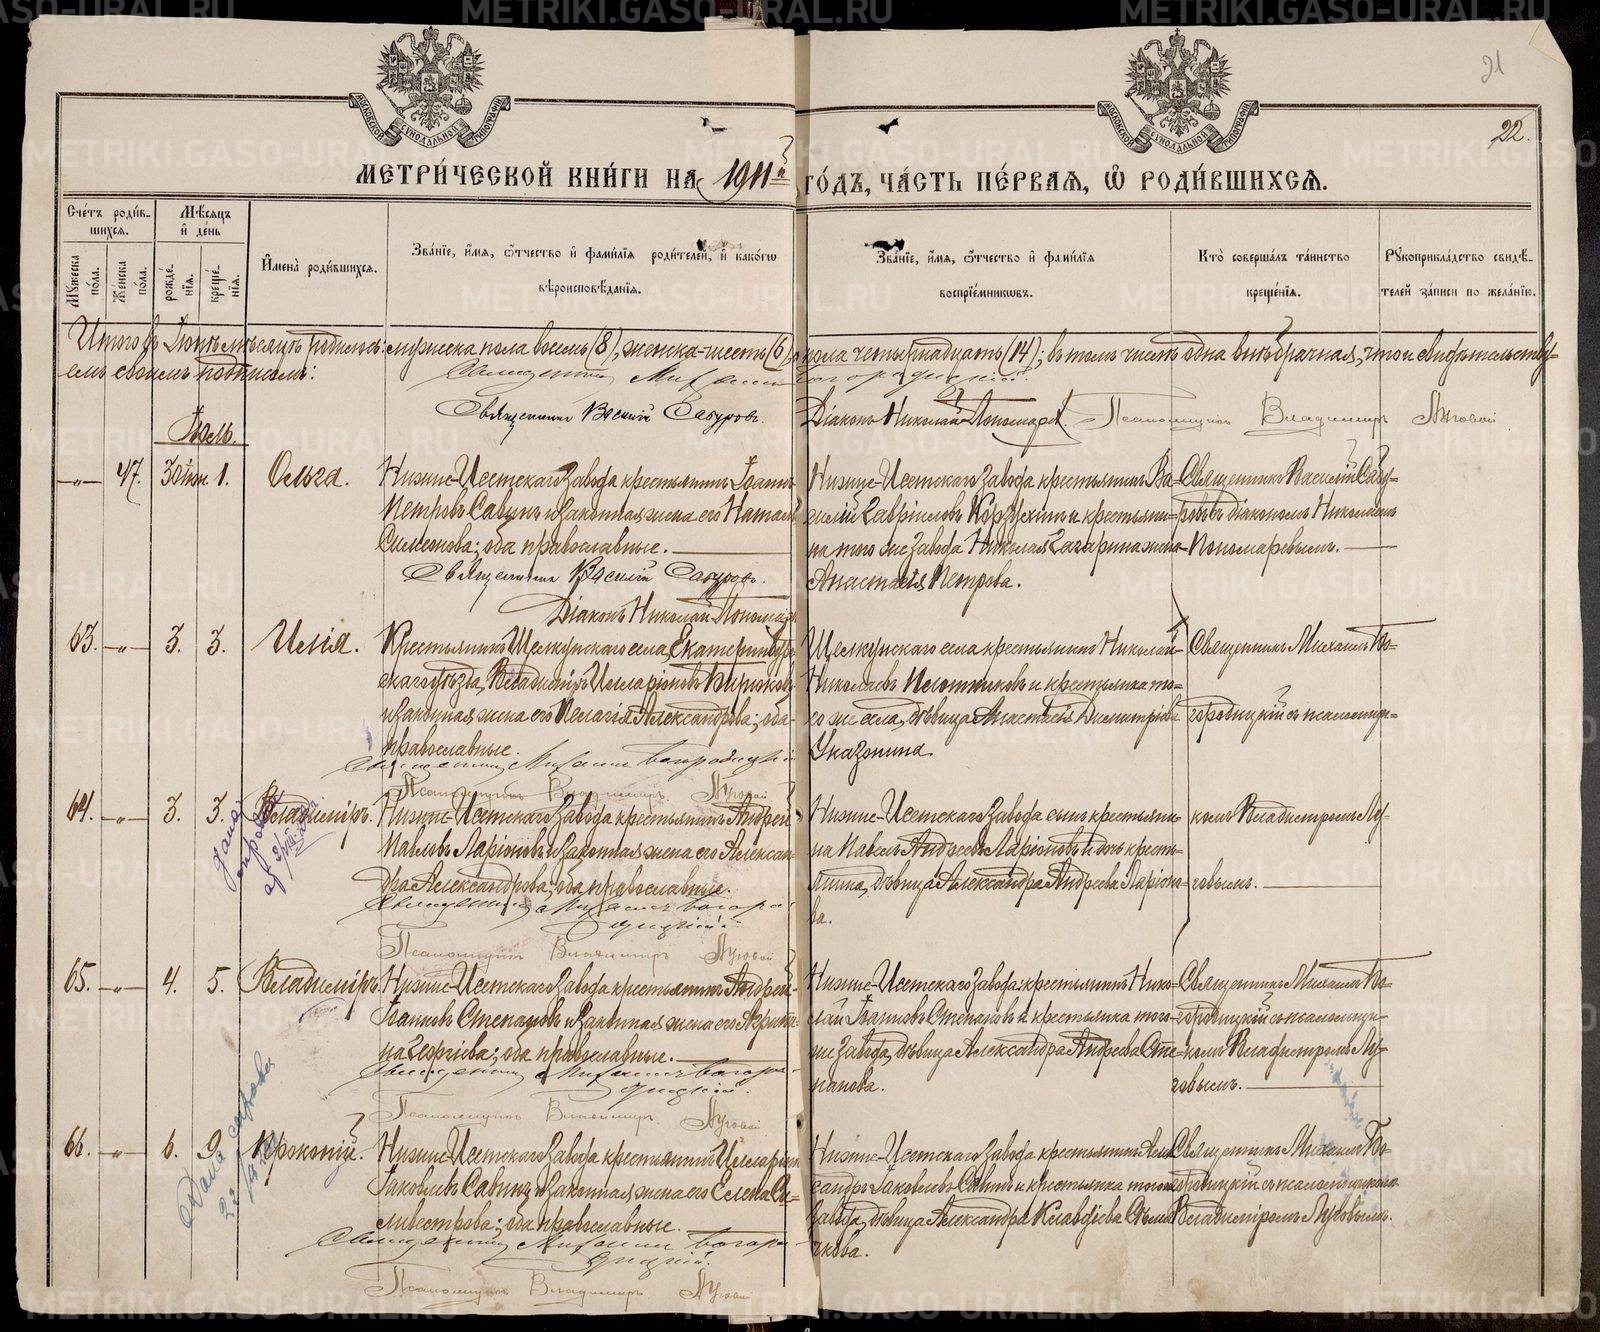 21
22.
МОСКОВСКОЙ СѴНОДАЛЬНОЙ ТИПОГРАФІИ
МОСКОВСКОЙ СѴНОДАЛЬНОЙ ТИПОГРАФІИ
МЕТРИ́ЧЕСКОЙ КНИ́ГИ НА 1911й ГО́ДЪ, ЧА́СТЬ ПЕ́РВАЯ, Ѿ РОДИ́ВШИХСЯ.
Сче́тъ роди́в-
шихся.
Мꙋжеска по́ла.
Же́нска по́ла.
Мѣ́сяцъ и҆ де́нь
рожде́нїя.
креще́нїя.
И҆мена̀ роди́вшихся.
Зва́нїе, и҆́мя, ѻ҆́тчество и҆ фами́лїя роди́телей, и҆ како́гѡ
вѣроисповѣ́данїя.
Зва́нїе, и҆́мя, ѻ҆́тчество и҆ фами́лїя
воспрїе́мникѡвъ.
Кто̀ соверша́лъ та́инство
креще́нїя.
Рꙋкоприкла́дство свидѣ́-
телей за́писи по жела́нїю.
Итого въ Іюнѣ мѣсяцѣ родилось: мужеска пола восемь (8), женска-шесть (6), пола четырнадцать (14); въ томъ числѣ одна внѣбрачная, что и свидѣтельству-
емъ своимъ подписомъ:
Священникъ Михаилъ Богородицкій.
Священникъ Василій Сабуровъ.
Діаконъ Николай Пономаревъ. Псаломщикъ Владимиръ Луговой
Іюль.
-"- 47. 30 іюн. 1. Ольга.
Нижне-Исетскаго завода крестьянинъ Іоаннъ
Петровъ Савинъ и законная жена его Наталія
Симеонова; оба православные.
Священникъ Василій Сабуровъ.
Діаконъ Николай Пономаревъ
Нижне-Исетскаго завода крестьянинъ Ва-
силій Гавріиловъ Корзухинъ и крестьяни-
на того же завода Николая Гагарина жена
Анастасія Петрова.
Священникъ Василій Сабу-
ровъ съ діакономъ Николаемъ
Пономаревымъ.
63. -"- 3. 3. Илія.
Крестьянинъ Щелкунскаго села, Екатеринбург-
скаго уѣзда, Владиміръ Илларіоновъ Бирюковъ
и законная жена его Пелагія Александрова; оба
православные.
Священникъ Михаилъ Богородицкій
Псаломщикъ Владимиръ Луговой
Щелкунскаго села крестьянинъ Николай
Николаевъ Плотниковъ и крестьянка то-
го же села, дѣвица Анастасія Димитріева
Указонина.
Священникъ Михаилъ Бо-
городицкій съ псаломщи-
64. -"- 3. 3. Владиміръ.
Нижне-Исетскаго завода крестьянинъ Андрей
Павловъ Ларіоновъ и законная жена его Алексан-
дра Александрова; оба православные.
Священникъ Михаилъ Богоро-
дицкій.
Псаломщикъ Владимиръ Луговой
Нижне-Исетскаго завода сынъ крестьяни-
на Павелъ Андреевъ Ларіоновъ и дочь кресть-
янина, дѣвица Александра Андреева Ларіоно-
ва.
комъ Владиміромъ Лу-
говымъ.
65. -"- 4. 5. Владиміръ.
Нижне-Исетскаго завода крестьянинъ Андрей
Іоанновъ Степановъ и законная жена его Ирини-
на Георгіева; оба православные.
Священникъ Михаилъ Богоро-
дицкій.
Псаломщикъ Владимиръ Луговой
Нижне-Исетскаго завода крестьянинъ Нико-
лай Іоанновъ Степановъ и крестьянка того-
же завода, дѣвица Александра Андреева Сте-
панова.
Священникъ Михаилъ Бо-
городицкій съ псаломщи-
комъ Владиміромъ Лу-
говымъ.
66. -"- 6. 9. Прокопій.
Нижне-Исетскаго завода крестьянинъ Илларіонъ
Іаковлевъ Савинъ и законная жена его Елена Си-
ливестрова; оба православные.
Священникъ Михаилъ Богоро-
дицкій.
Псаломщикъ Владимиръ Луговой
Нижне-Исетскаго завода крестьянинъ Алек-
сандръ Іаковлевъ Савинъ и крестьянка того же
завода, дѣвица Александра Клавдіева
чкова.
Священникъ Михаилъ Бо-
городицкій съ псаломщикомъ
Владиміромъ Луговымъ.
дана справка
Дана справка
METRIKI.GASO-URAL.RU